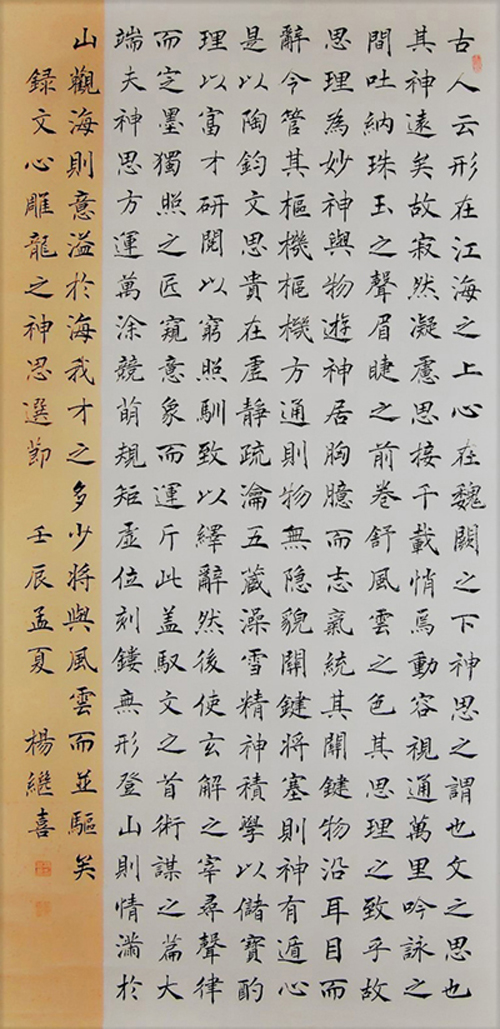 古人云形在江海之上心在魏闕之下神思之謂也文之思也
其神遠矣故寂然凝慮思接千載悄焉動容視通萬里吟詠之
間吐納珠玉之聲眉睫之前卷舒風雲之色其思理之致乎故
思理為妙神與物遊神居胸臆而志氣統其關鍵物沿耳目而
辭令管其樞機樞機方通則物無隐貌關鍵將塞則神有遁心
是以陶鈞文思貴在虛靜疏瀹五藏澡雪精神積學以儲寶酌
理以富才研閱以窮照馴致以繹辭然後使玄解之宰尋聲律
而定墨獨照之匠窺意象而運斤此盖馭文之首術謀之篇大
端夫神思方運萬涂競萌規矩虛位刻鏤無形登山則情滿於
山觀海則意溢於海我才之多少將與風雲而並驅矣
録文心雕龍之神思選節 壬辰孟夏 楊継喜